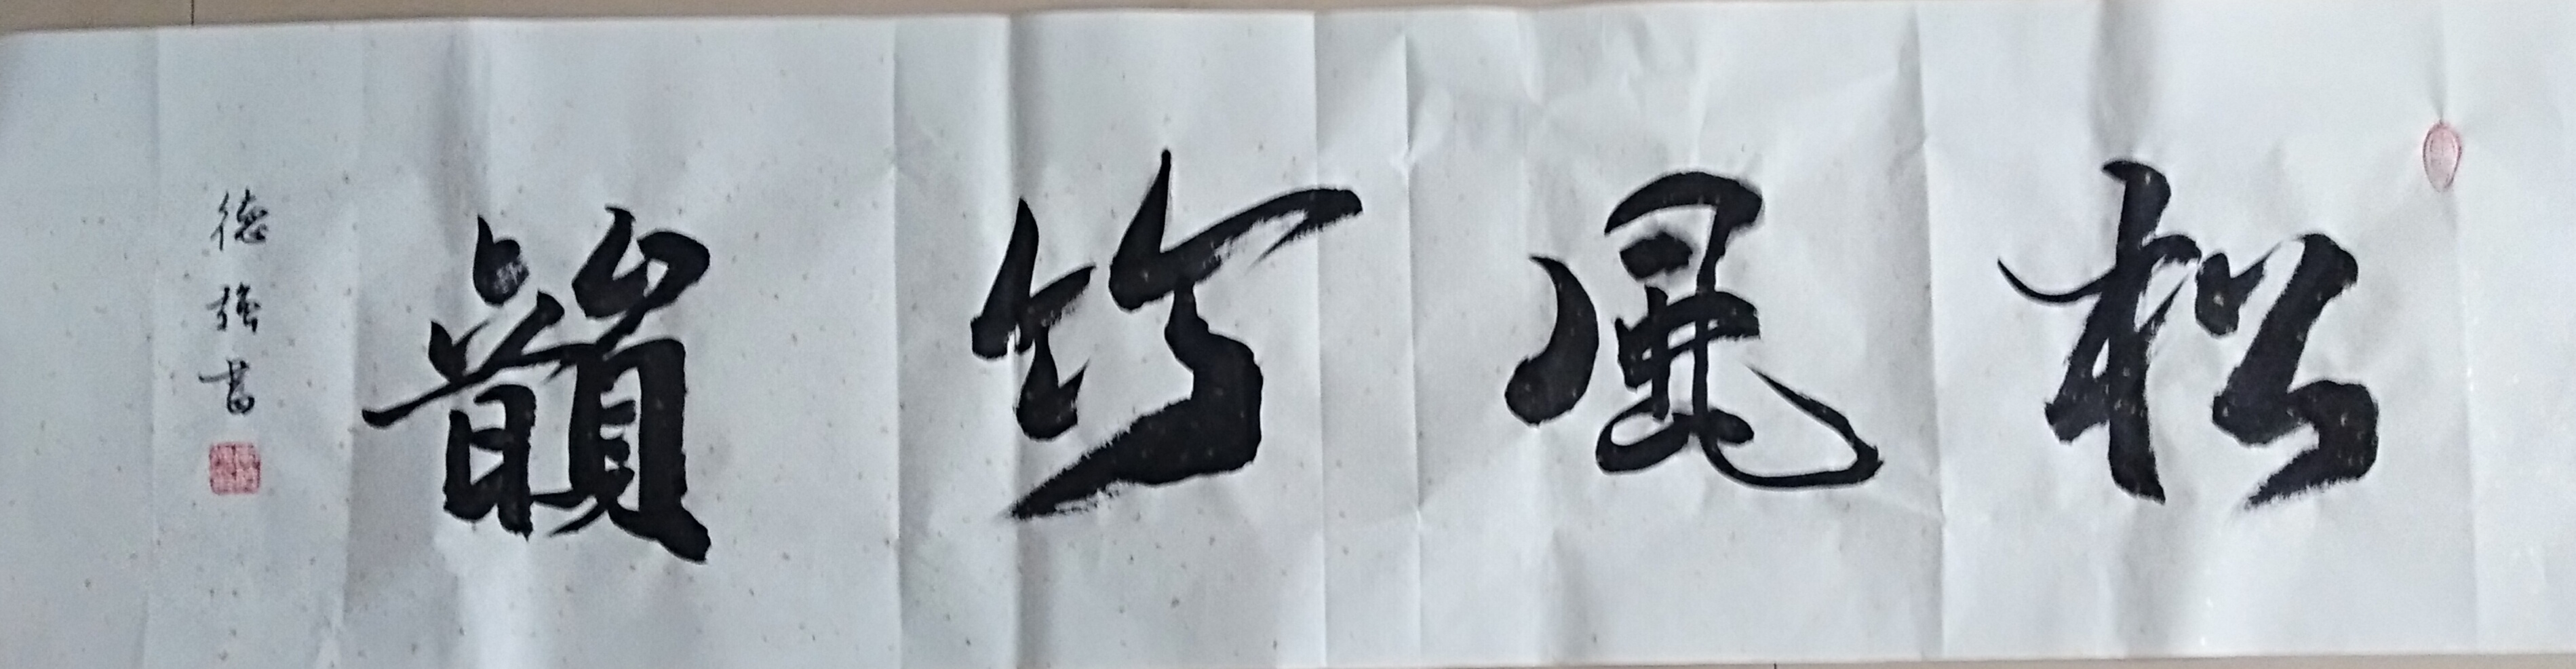 松風竹韻
德強書